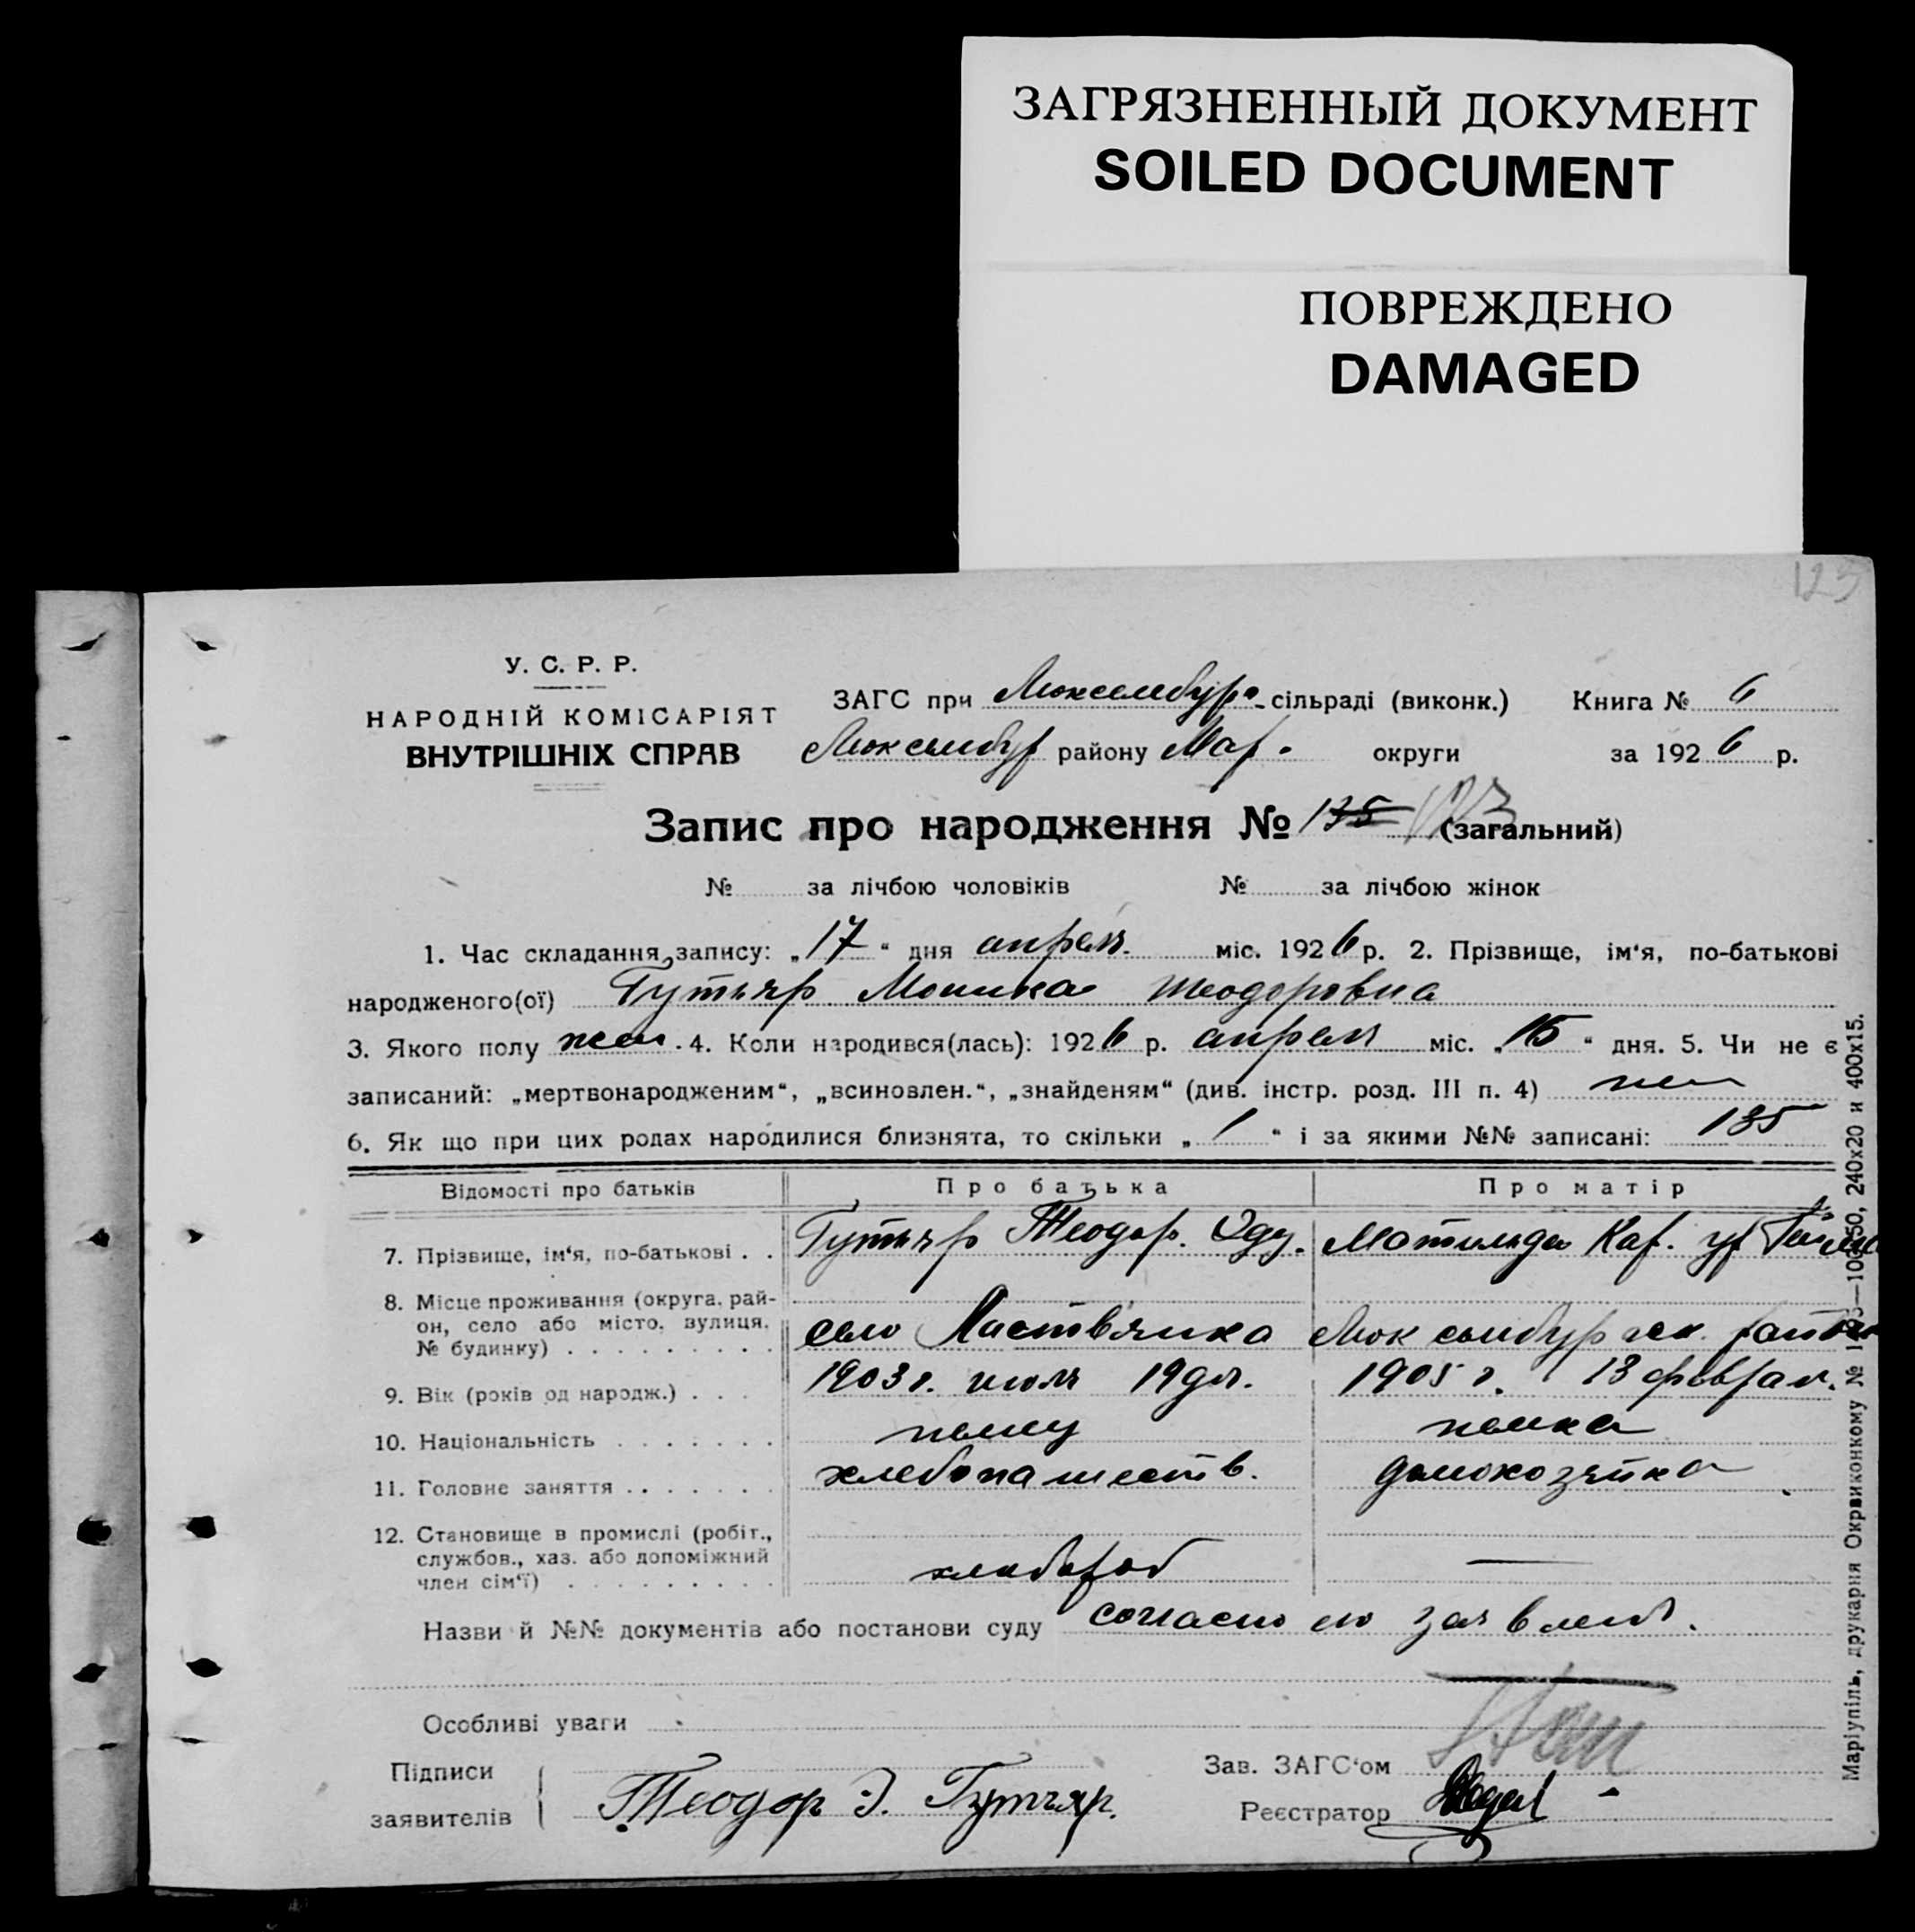 ЗАГРЯЗНЕННЫЙ ДОКУМЕНТ
SOILED DOCUMENT
ПОВРЕЖДЕНО
DAMAGED
123
У. С. Р. Р.
НАРОДНІЙ КОМІСАРІЯТ
ВНУТРІШНІХ СПРАВ
ЗАГС при Люксембург. сільраді (виконк.) Книга № 6
Люксембур району Мар. округи за 1926 р.
Запис про народження № 135 123 (загальний)
№ за лічбою чоловіків № за лічбою жінок
1. Час складання запису: „17“ дня апреля міс. 1926 р. 2. Прізвище, ім‘я, по-батькові
народженого(ої) Гутьяр Моника Теодоровна
3. Якого полу жен. 4. Коли народився(лась): 1926 р. апреля міс. „15“ дня. 5. Чи не є
записаний: „мертвонародженим“, „всиновлен.“, „знайденям“ (див. інстр. розд. III п. 4) нет
6. Як що при цих родах народилися близнята, то скільки „1“ і за якими №№ записані: 135
Відомості про батьків Про батька Про матір
7. Прізвище, ім‘я, по-батькові . . Гутьяр Теодор. Эду. Матильда Кар. ур
8. Місце проживання (округа, рай-
он, село або місто, вулиця, село Листвянка Люксембургск.
№ будинку) . . . . . . . . .
9. Вік (років од народж.) . . . 1903 г. июля 19 дн. 1905 г. 13 феврал.
10. Національність . . . . . . . немец немка
11. Головне заняття . . . . . . . хлебопашеств. домохозяйка
12. Становище в промислі (робіт.,
службов., хаз. або допоміжний
член сім‘ї) . . . . . . . . . хлебороб —
Назви й №№ документів або постанови суду согласно его заявлен.
Особливі уваги
Підписи Зав. ЗАГС‘ом
заявителів Теодор Э. Гутьяр. Реєстратор
Маріупіль, друкарня Окрвиконкому № 240х20 и 400х15.